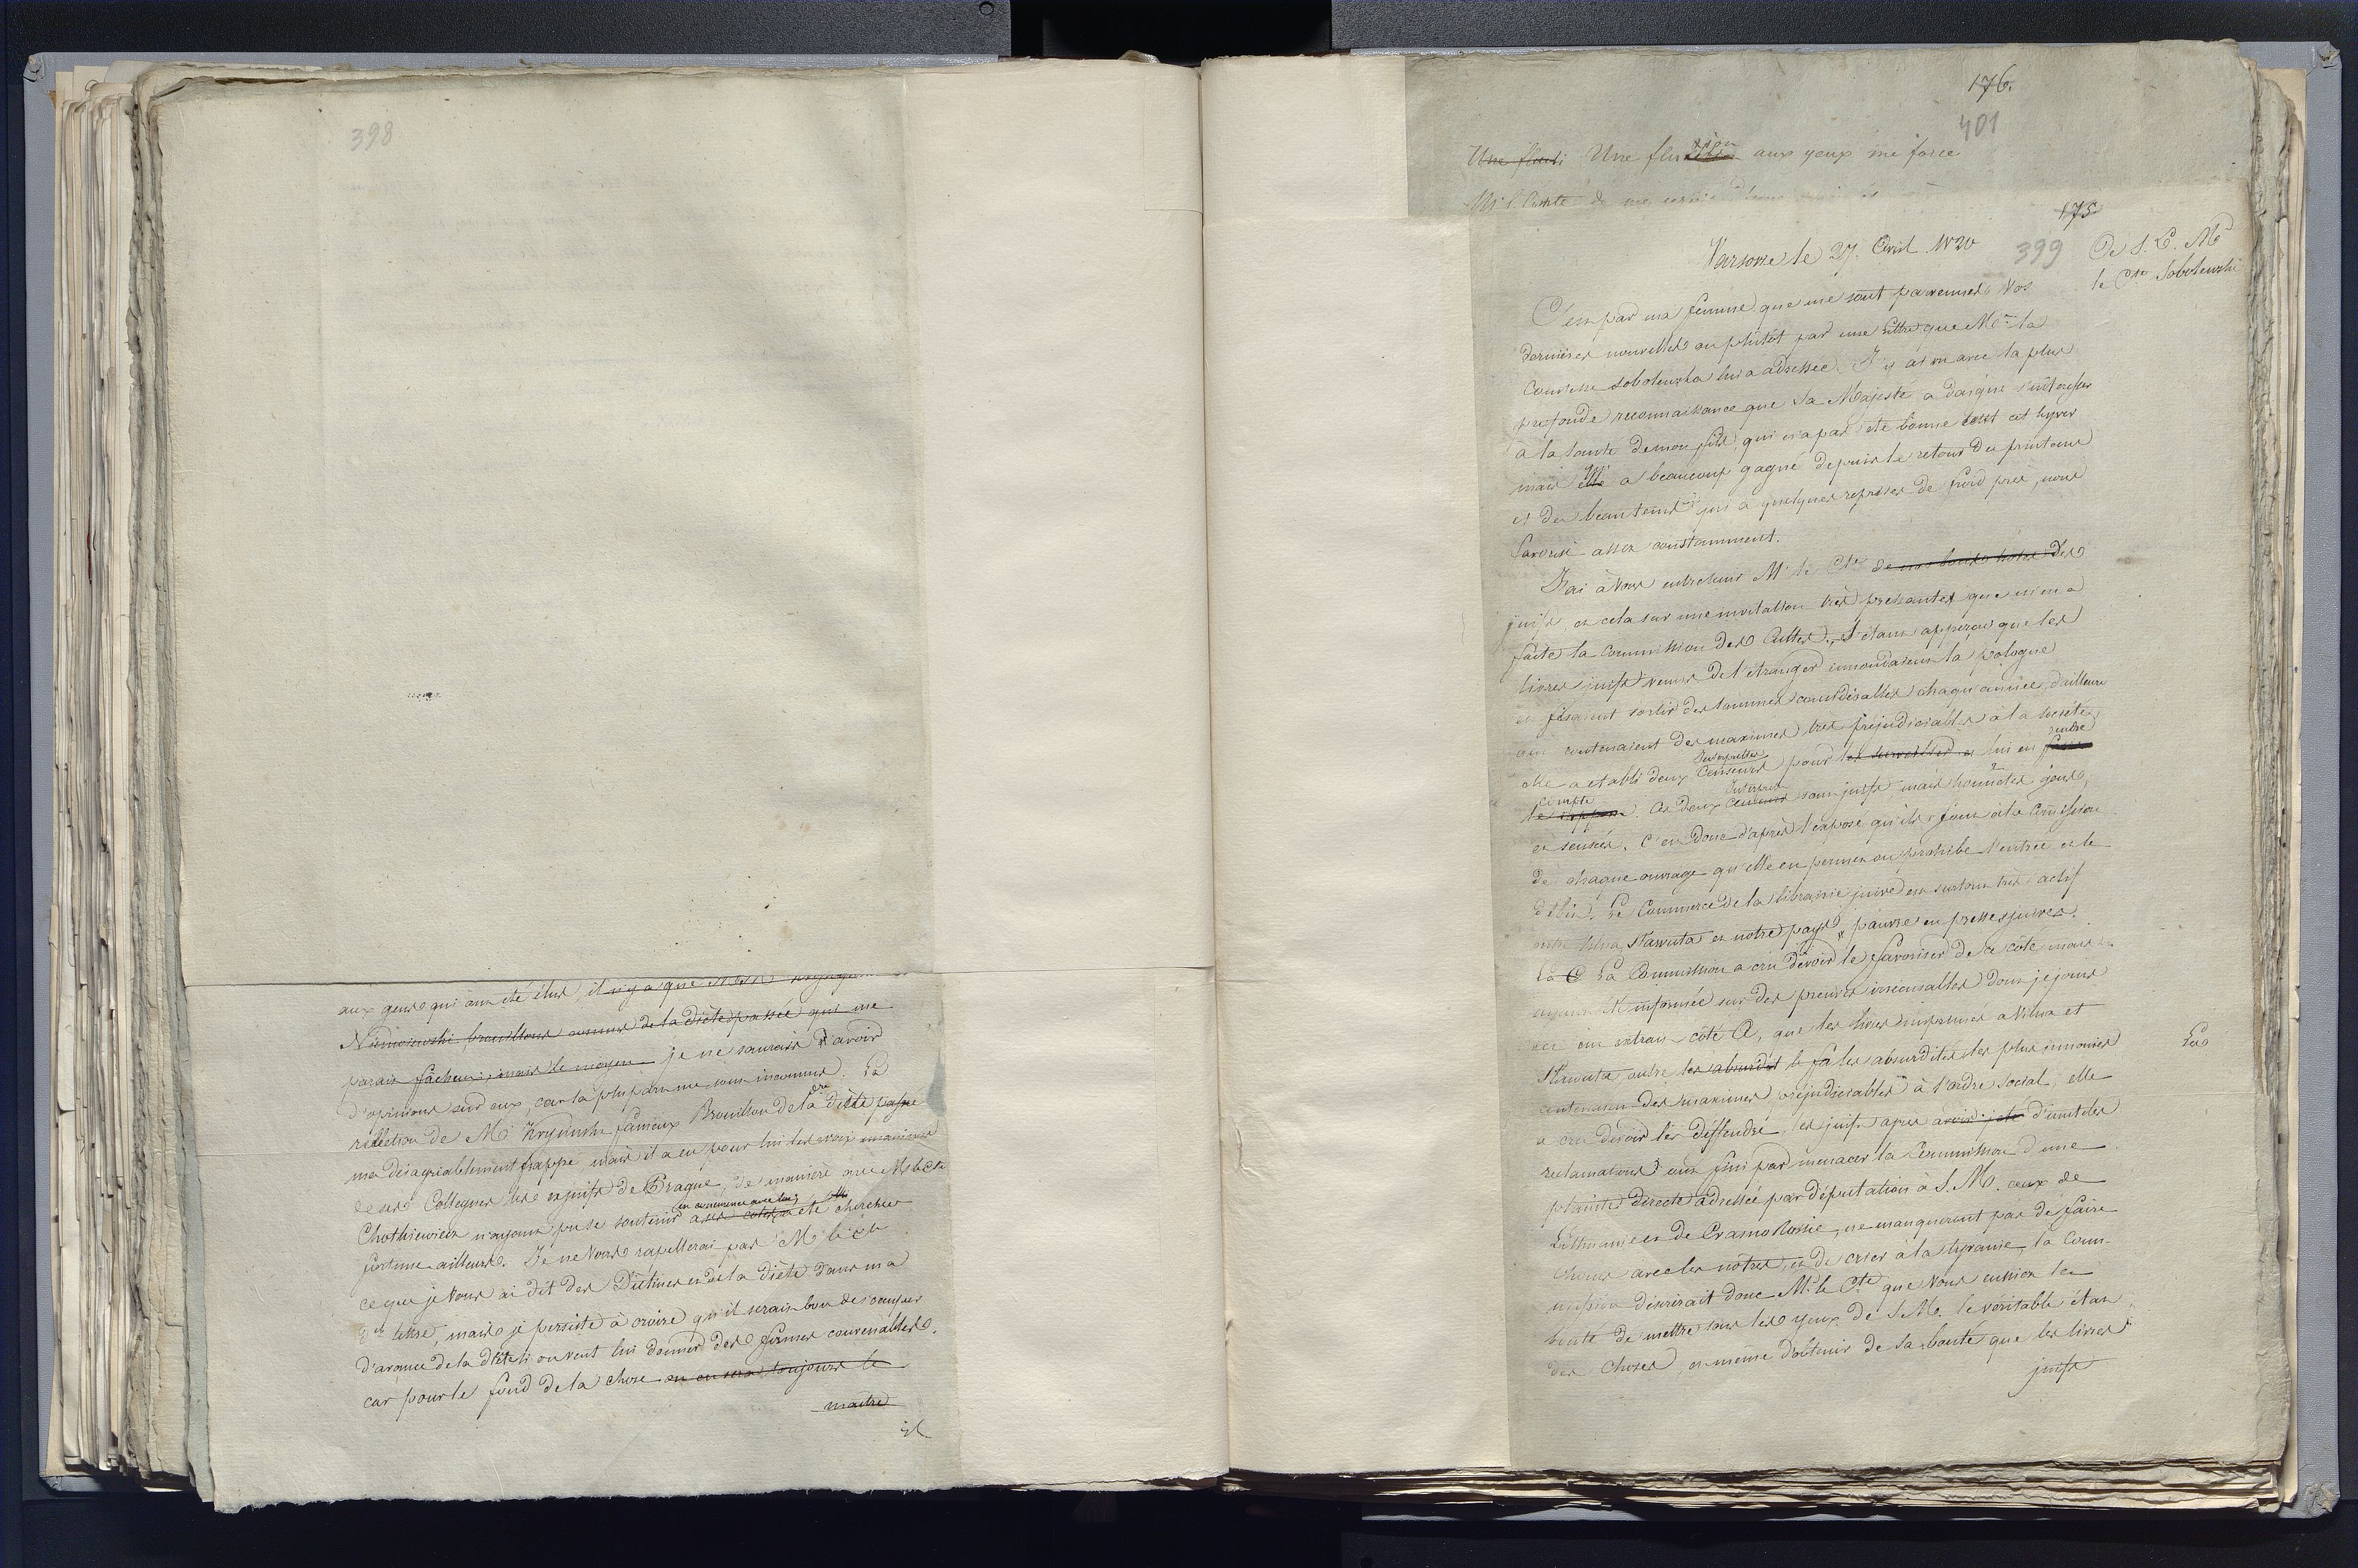 398
aux gens qui ont été élus, il n'y a que
Niemoiewski, brouillons connus de la diète passée qui me
parais facheux, mais le moyen je ne saurais avoir
d'opinions sur eux, car la plupart me sont inconnus. La
réelection de Mr Krysinski fameux Brouillon de la diète passée
m'a désagréablement frappé mais il a eu pour lui les voix unanimes
de ses Collegues les exjuifs de Prague, de manière que Mr le Cte
Chotkiewicz n'ayant pu se soutenir en concurrence avec lui, a été chercher
fortune ailleurs. Je ne Vous rapellerai pas Mr le Cte
ce que je Vous ai dit des Diètines et de la diète dans ma
lettre, mais je persiste à croire qu'il serait bon de s'occuper
d'avance de la diète si on veut lui donner des formes convenables.
car pour le fond de la chose on en sera toujours le
maitre
il
176.
401
Une fluxi Une fluxion aux yeux me force
Mr l. Comte de me servir d'une
175
Varsovie le 27. Avril 1820
399
De S. E. Mr
le Cte Sobolewski
C'est par ma femme que me sont parvenues Vos
dernières nouvelles ou plutôt par une lettre que Mme la
Comtesse Sobolewska lui a adressée. J'y ai vu avec la plus
profonde reconnaissance que Sa Majesté a daigné s'intéresser
à la santé de mon fils, qui n'a pas été bonne tout cet hyver
mais elle a beaucoup gagné depuis le retour du printems
et du beau tems qui à quelques reprises de froid près, nous
favorise assez constamment.
J'ai à Vous entretenir Mr le Cte des
juifs, et cela sur une invitation très pressante que m'en a
faite la Commission des Cultes. S'étant apperçue que les
livres juifs venus de l'étranger innondaient la pologne
et fesaient sortir des sommes considérables chaqu'année, d'ailleurs
qui contenaient des maximes très préjudiciables à la société,
elle a établi deux Censeurs Interprètes pour les surveiller et lui en rendre
compte. Ces deux Censeurs Interprètes sont juifs, mais honnêtes gens,
et sensés. C'est donc d'après l'exposé qu'ils font à la Commission
de chaque ouvrage qu'elle en permet ou prohibe l'entrée et le
débit. Le Commerce de la librairie juive est surtout très actif
entre Vilna, Slawuta et notre pays, pauvre en presses juives.
La C La Commission a cru devoir le favoriser de ce côté mais
ayant été informée sur des preuves irrécusables dont je joins
ici un extrait côté A, que les livres imprimés à Vilna et
Slawuta, outre les absurdit le fa les absurdités les plus innouies
contenaient des maximes préjudiciables à l'ordre social, elle
a cru devoir les deffendre. Les juifs apres avoir jeté d'inutiles
reclamations ont fini par menacer la Commission d'une
plainte directe adressée par députation à S. M. ceux de
Lithuanie et de Crasno Rossie, ne manqueront pas de faire
chorus avec les nôtres, et de crier à la tyranie, la Com-
mission désirerait donc Mr le Cte que Vous eussiez la
bonté de mettre sous les yeux de S. M. le véritable état
des choses, et même d'obtenir de sa bonté que les livres
juifs
Les